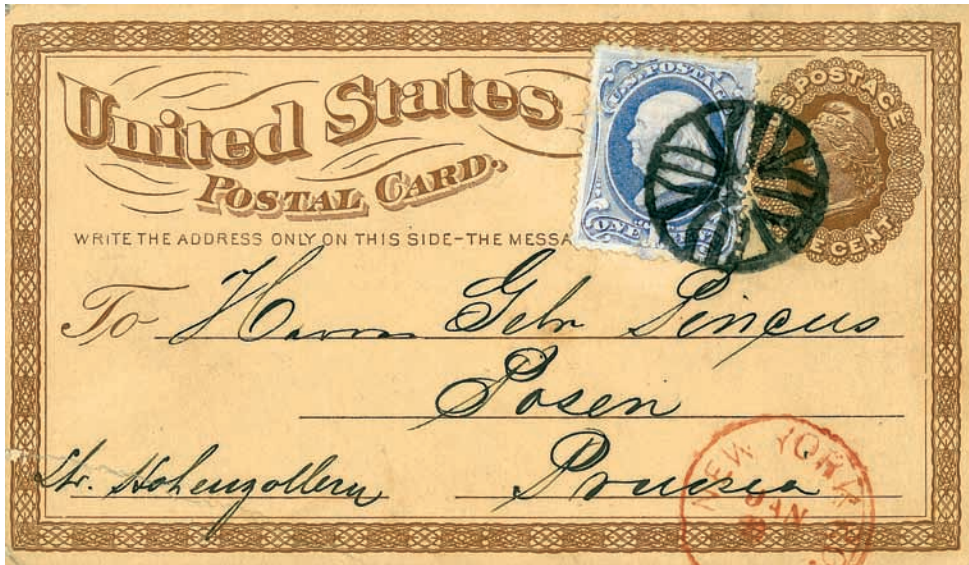 United States
POSTAL CARD.
U.S. POSTAGE
ONE CENT
U.S. POSTAGE
ONE CENT
WRITE THE ADDRESS ONLY ON THIS SIDE-THE MESSA
To Herrn Gebr Pincus
Posen
Str. Hohenzollern Prussia
NEW YORK
JAN